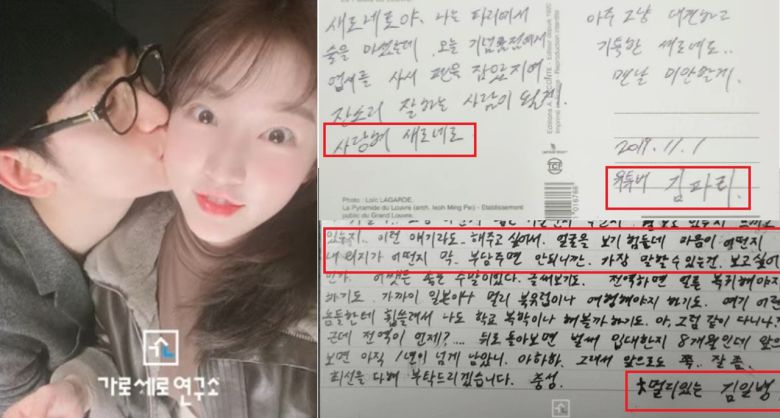 가로세로연구소
새로네로야, 나는 파리에서
술을 마셨는데 오늘 기념품점에서
엽서를 사서 펜을 잡았지여
잔소리 잘하는 사람이
사랑해 새로네로
Photo : Loïc LAGARDE,
La Pyramide du Louvre (arch. Ieoh Ming Pei) - Etablissement
public du Grand Louvre.
아주 그냥 대견하고
기특한 새로네로..
맨날 미안할게.
2019. 11. 1
김파리
있는지.. 이런 얘기라도.. 해주고 싶어서. 얼굴을 보기 힘든데 마음이 어떤지
내 의지가 어떤지 막. 부담주면 안되니깐. 가장 말할 수 있는건. 보고싶어
어쨌든 좋은 수발이었다. 글써보기도. 전역하면 일을 복귀해야지
하기도. 가까이 일본이나 멀리 북유럽이나 여행해야지 하기도. 여기 어린
놈들한테 휩쓸려서 나도 학교 복학이나 해볼까하기도. 아, 그럼 같이 다니나?
근데 전역이 언제?.... 뒤로 돌아보면 벌써 입대한지 8개월인데 앞으
보면 아직 1년이 넘게 남았니. 아하하. 그래서 앞으로도 쭉.. 잘 좀.
최선을 다해 부탁드리겠습니다. 충성.
멀리있는 김일병